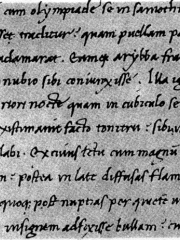 cum olympiade se in samothr
set traditur: quam puellam po
adamarat. Eamq; arybba fra
nubio sibi coniunxisse. Illa ig
riori nocte quam in cubiculo se
existimavit facto tonitru: sibi
labi. Ex cuius ictu cum magnu
: postea in late diffusas flam
quoq; post nuptias per quiete
insignem adfixisse bullam: cu